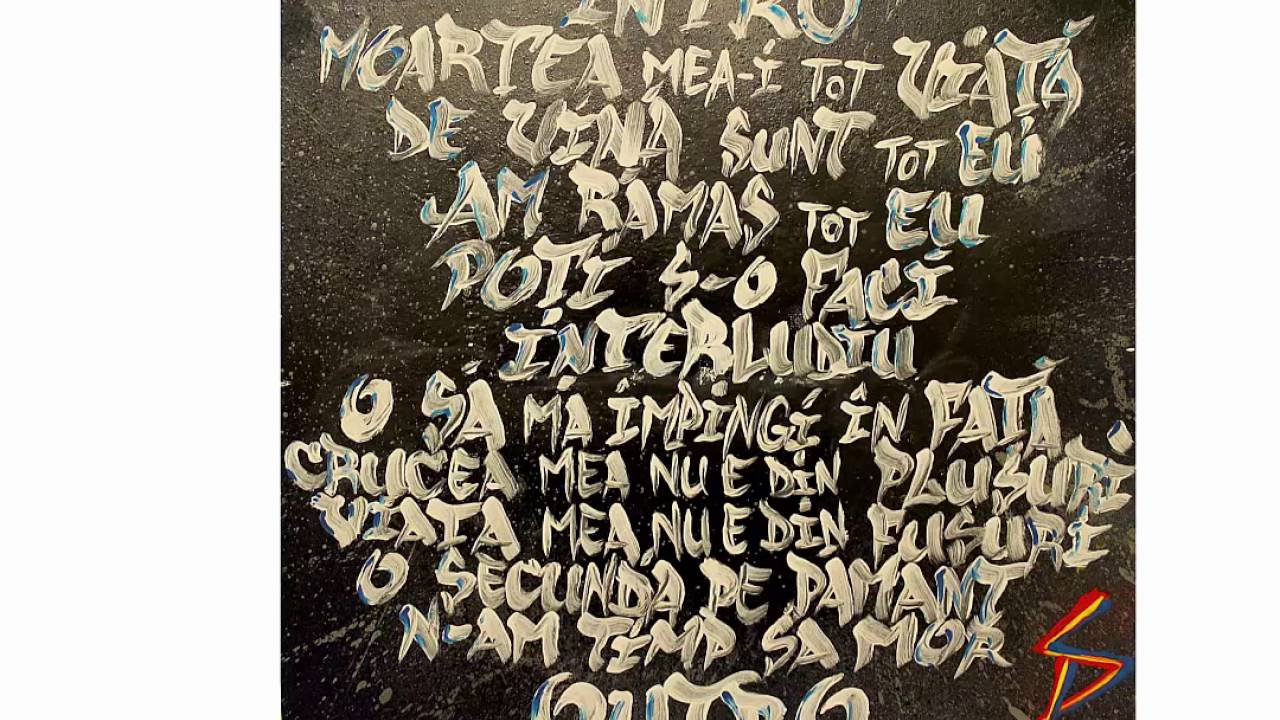 INTRO
MOARTEA MEA-I TOT VIAȚĂ
DE VINĂ SUNT TOT EU
AM RAMAS TOT EU
POȚI S-O FACI
INTERLUDIU
O SĂ MĂ ÎMPINGI ÎN FAȚĂ
CRUCEA MEA NU E DIN PLUSURI
VIAȚA MEA NU E DIN FUSURI
O SECUNDĂ PE PAMANT
N-AM TIMP SA MOR
OUTRO